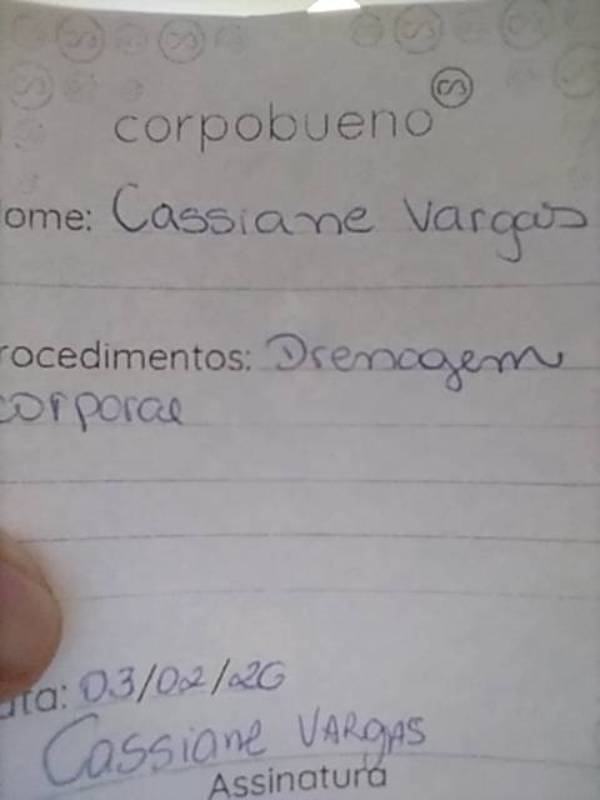 corpobueno
ome: Cassiane Vargas
rocedimentos: Drenagem
corporal
ata: 03/02/26
Cassiane VARgAS
Assinatura